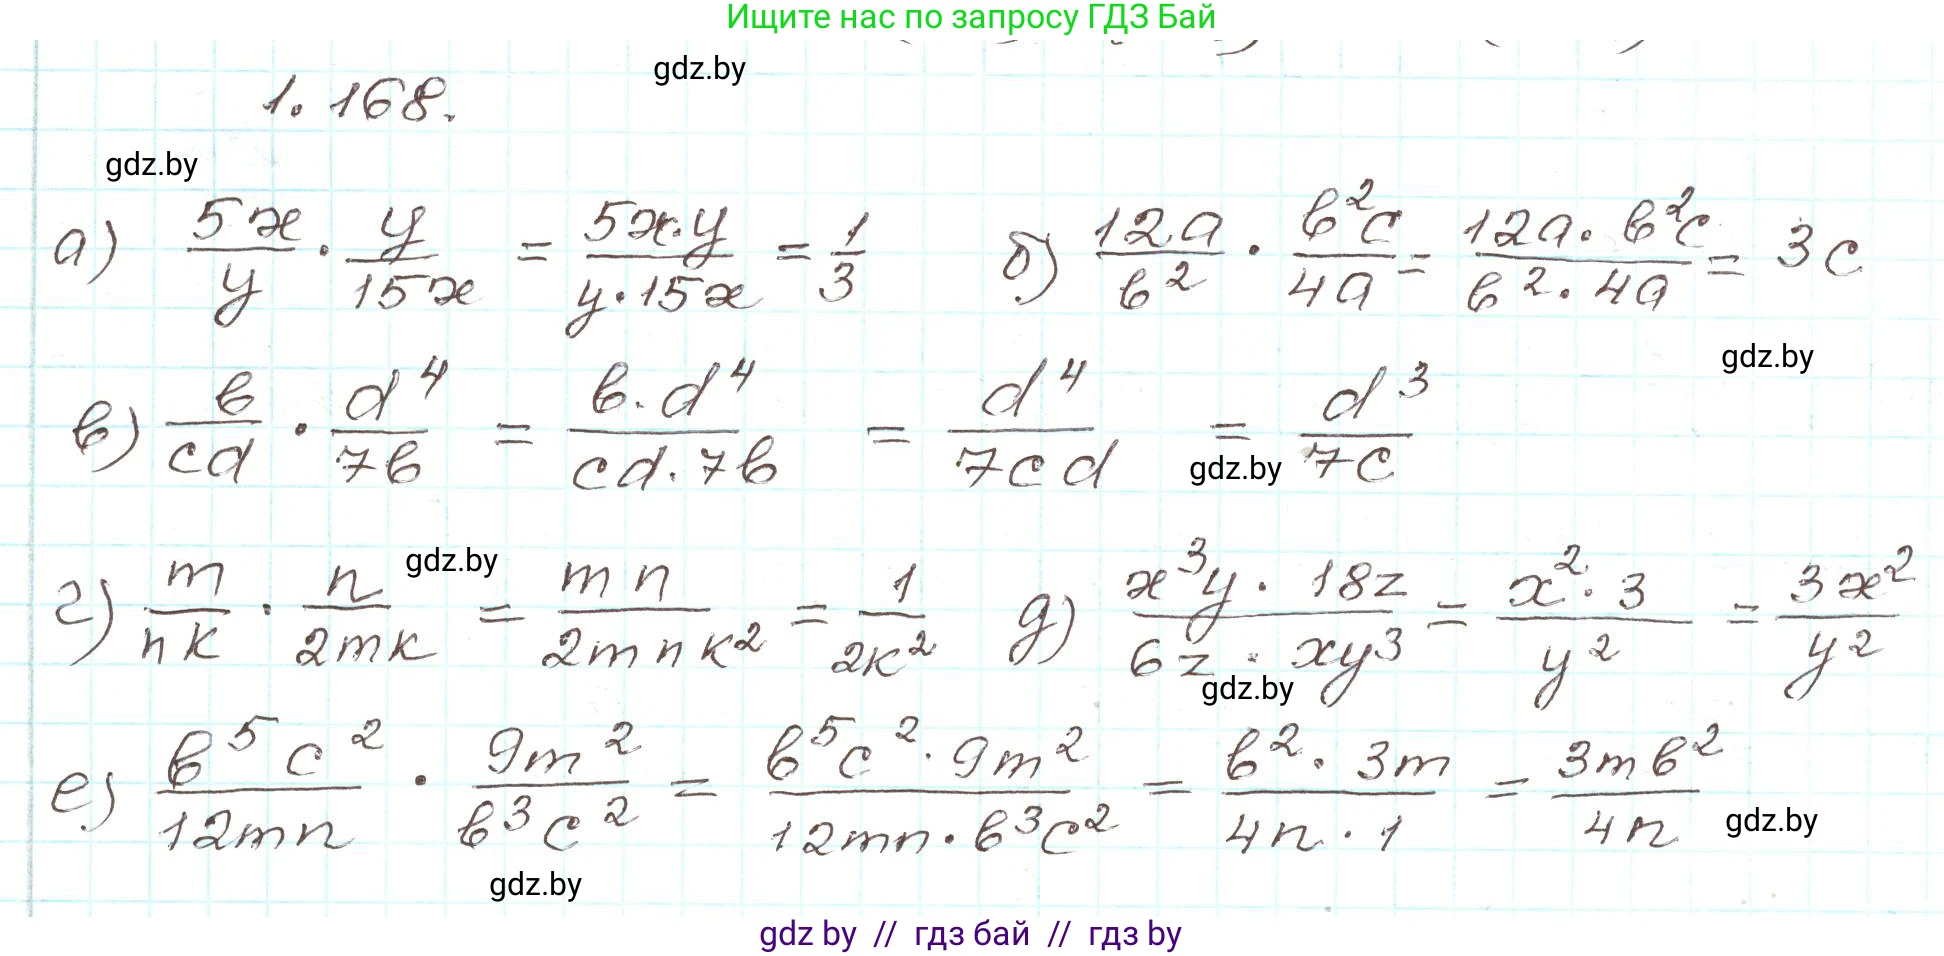 Ищите нас по запросу ГДЗ Бай
gdz.by
1.168.
gdz.by
а) 5x/y · y/15x = 5x·y/y·15x = 1/3 б) 12a/b² · b²c/4a = 12a·b²c/b²·4a = 3c
gdz.by
в) b/cd · d⁴/7b = b·d⁴/cd·7b = d⁴/7cd = d³/7c
gdz.by
gdz.by
г) m/nk · n/2mk = mn/2mnk² = 1/2k² д) x³y · 18z/6z · xy³ = x²·3/y² = 3x²/y²
gdz.by
е) b⁵c²/12mn · 9m²/b³c² = b⁵c²·9m²/12mn·b³c² = b²·3m/4n·1 = 3mb²/4n
gdz.by
gdz.by
gdz by // гдз бай // гдз by